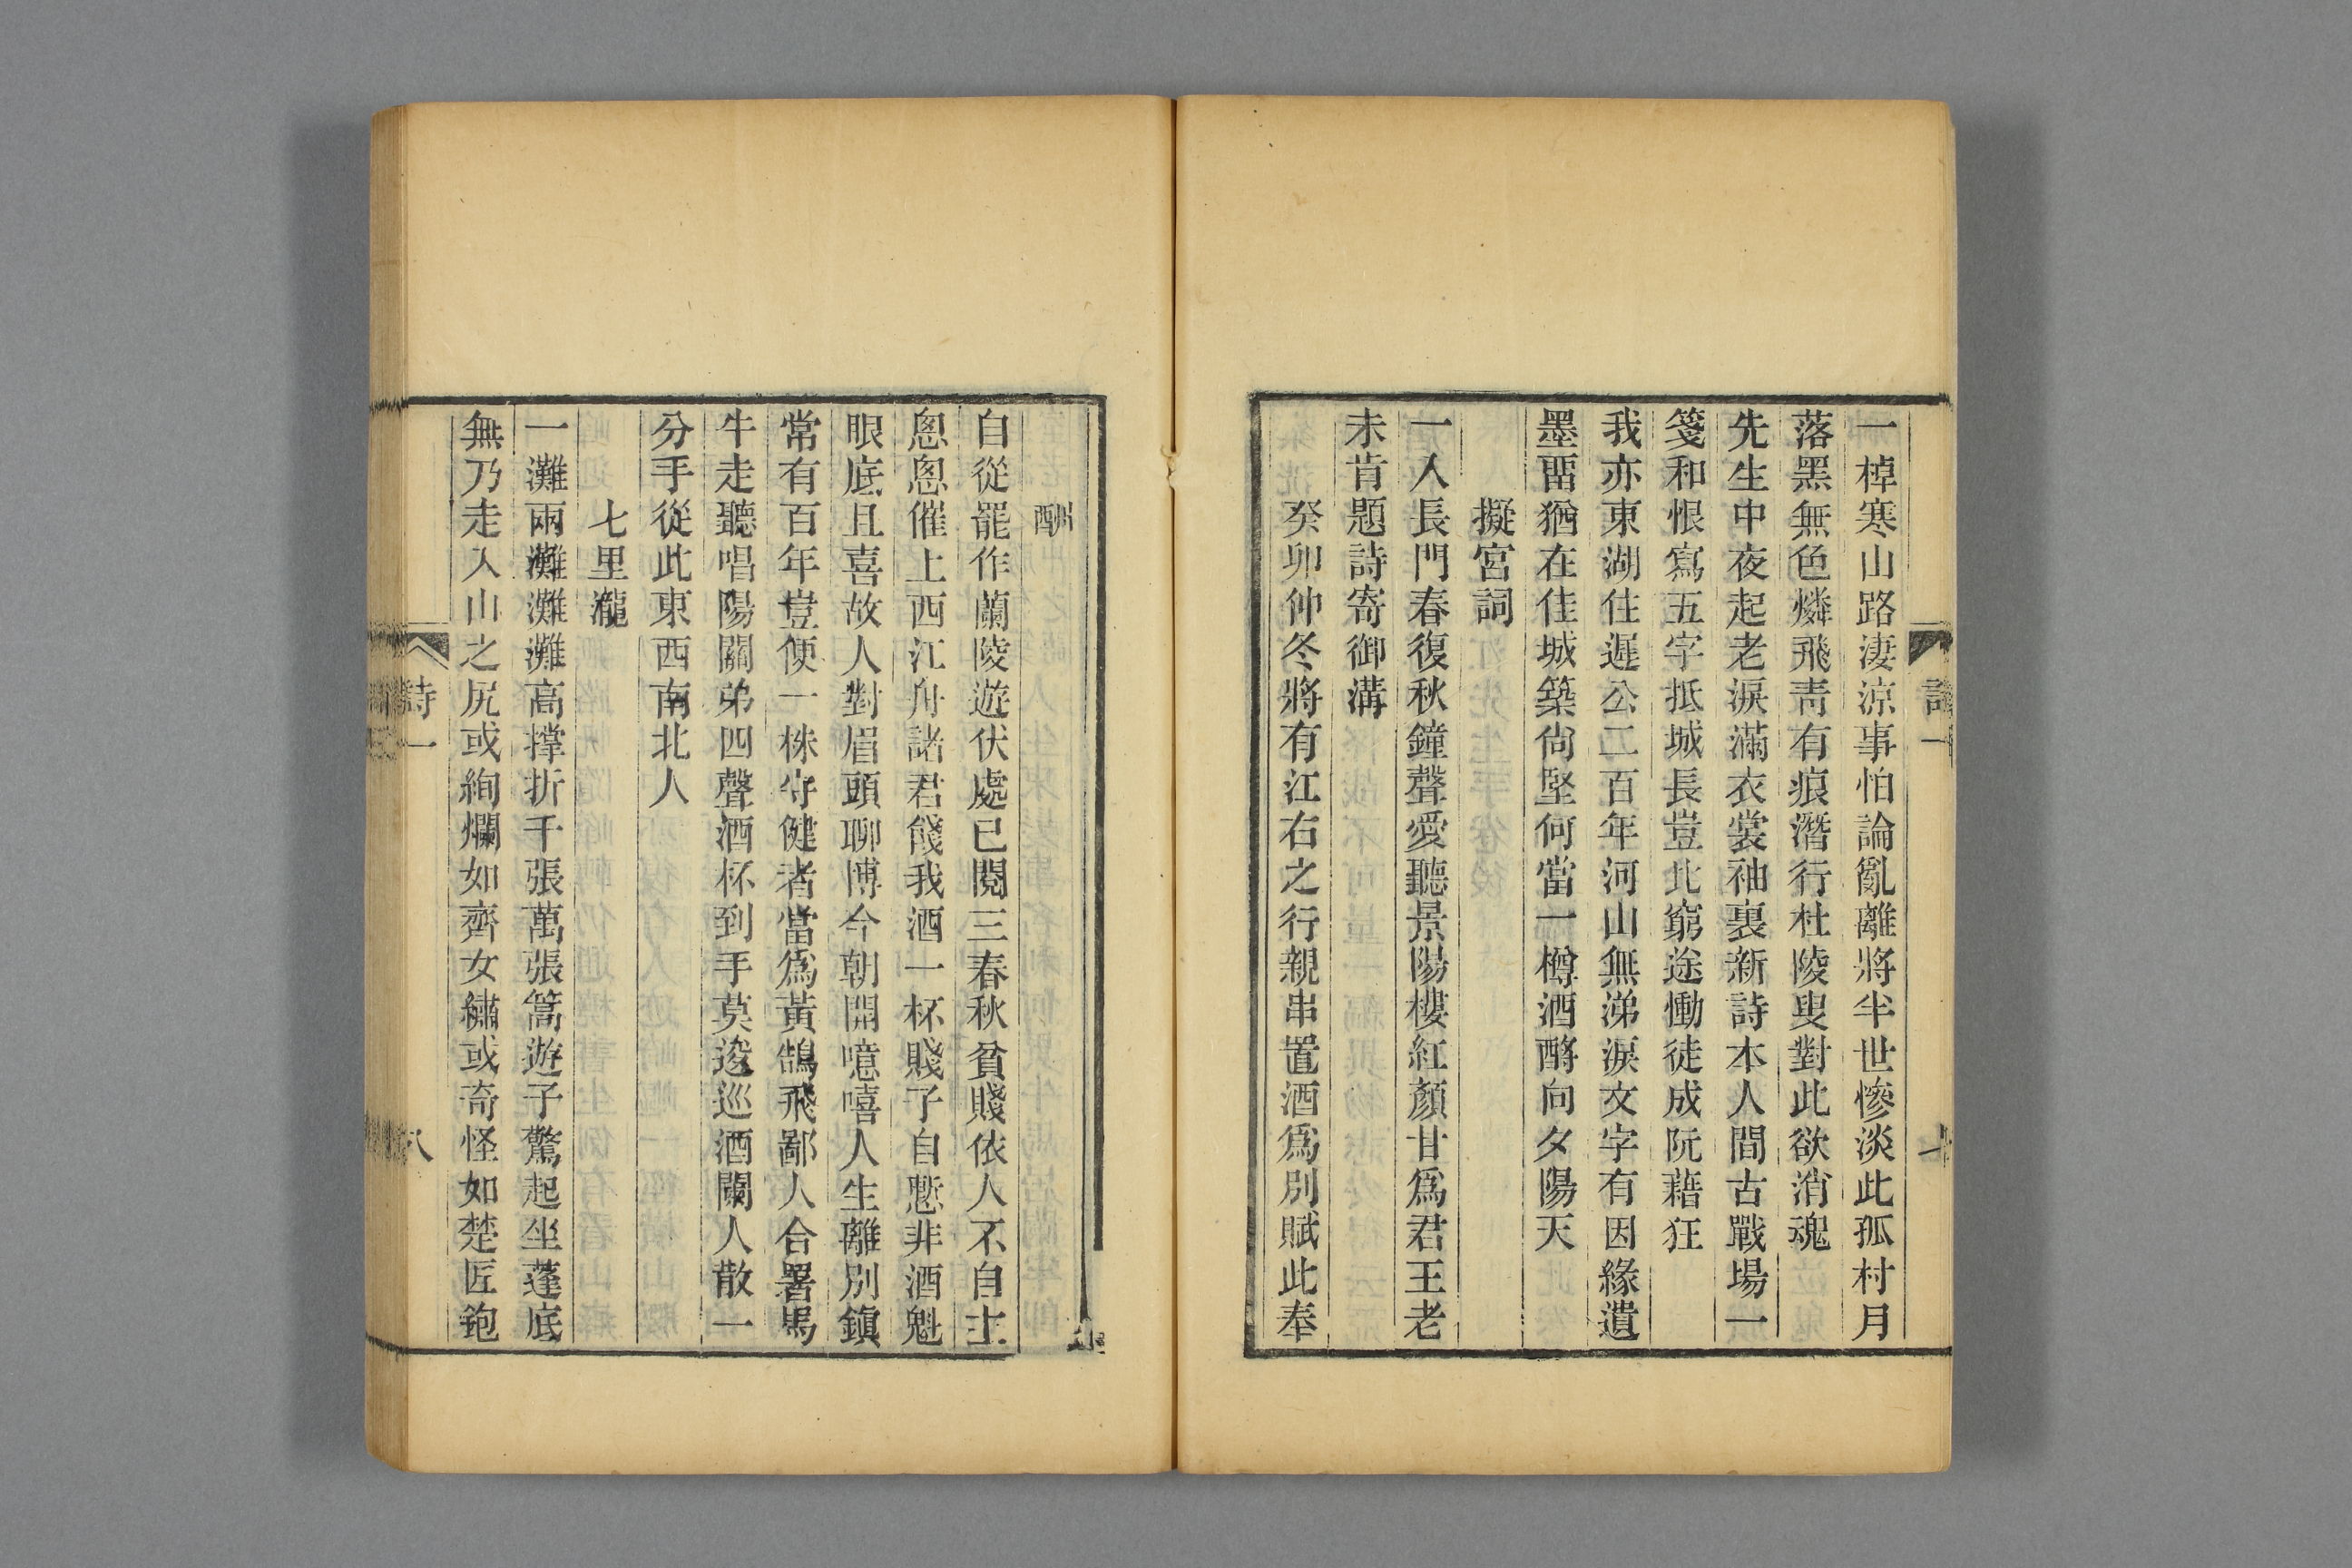 詩一
七
一棹寒山路淒涼事怕論亂離將半世慘淡此孤村月
落黑無色燐飛靑有痕潛行杜陵叟對此欲消魂
先生中夜起老淚滿衣裳袖裏新詩本人間古戰場一
箋和恨寫五字抵城長豈北窮途慟徒成阮藉狂
我亦東湖住遲公二百年河山無涕淚文字有因緣遺
墨畱猶在佳城築尙堅何當一樽酒酹向夕陽天
擬宮詞
一人長門春復秋鐘聲愛聽景陽樓紅顏甘爲君王老
未肯題詩寄御溝
癸卯仲冬將有江右之行親串置酒爲別賦此奉
酬
自從罷作蘭陵遊伏處已閱三春秋貧賤依人不自主
悤悤催上西江舟諸君餞我酒一杯賤子自慙非酒魁
眼底且喜故人對眉頭聊博今朝開噫嘻人生離別鎭
常有百年豈便一株守健者當爲黃鵠飛鄙人合署馬
牛走聽唱陽關弟四聲酒杯到手莫逡巡酒闌人散一
分手從此東西南北人
七里瀧
一灘兩灘灘灘高撑折千張萬張篙遊子驚起坐蓬底
無乃走入山之尻或絢爛如齊女繡或奇怪如楚匠鉋
詩一
八